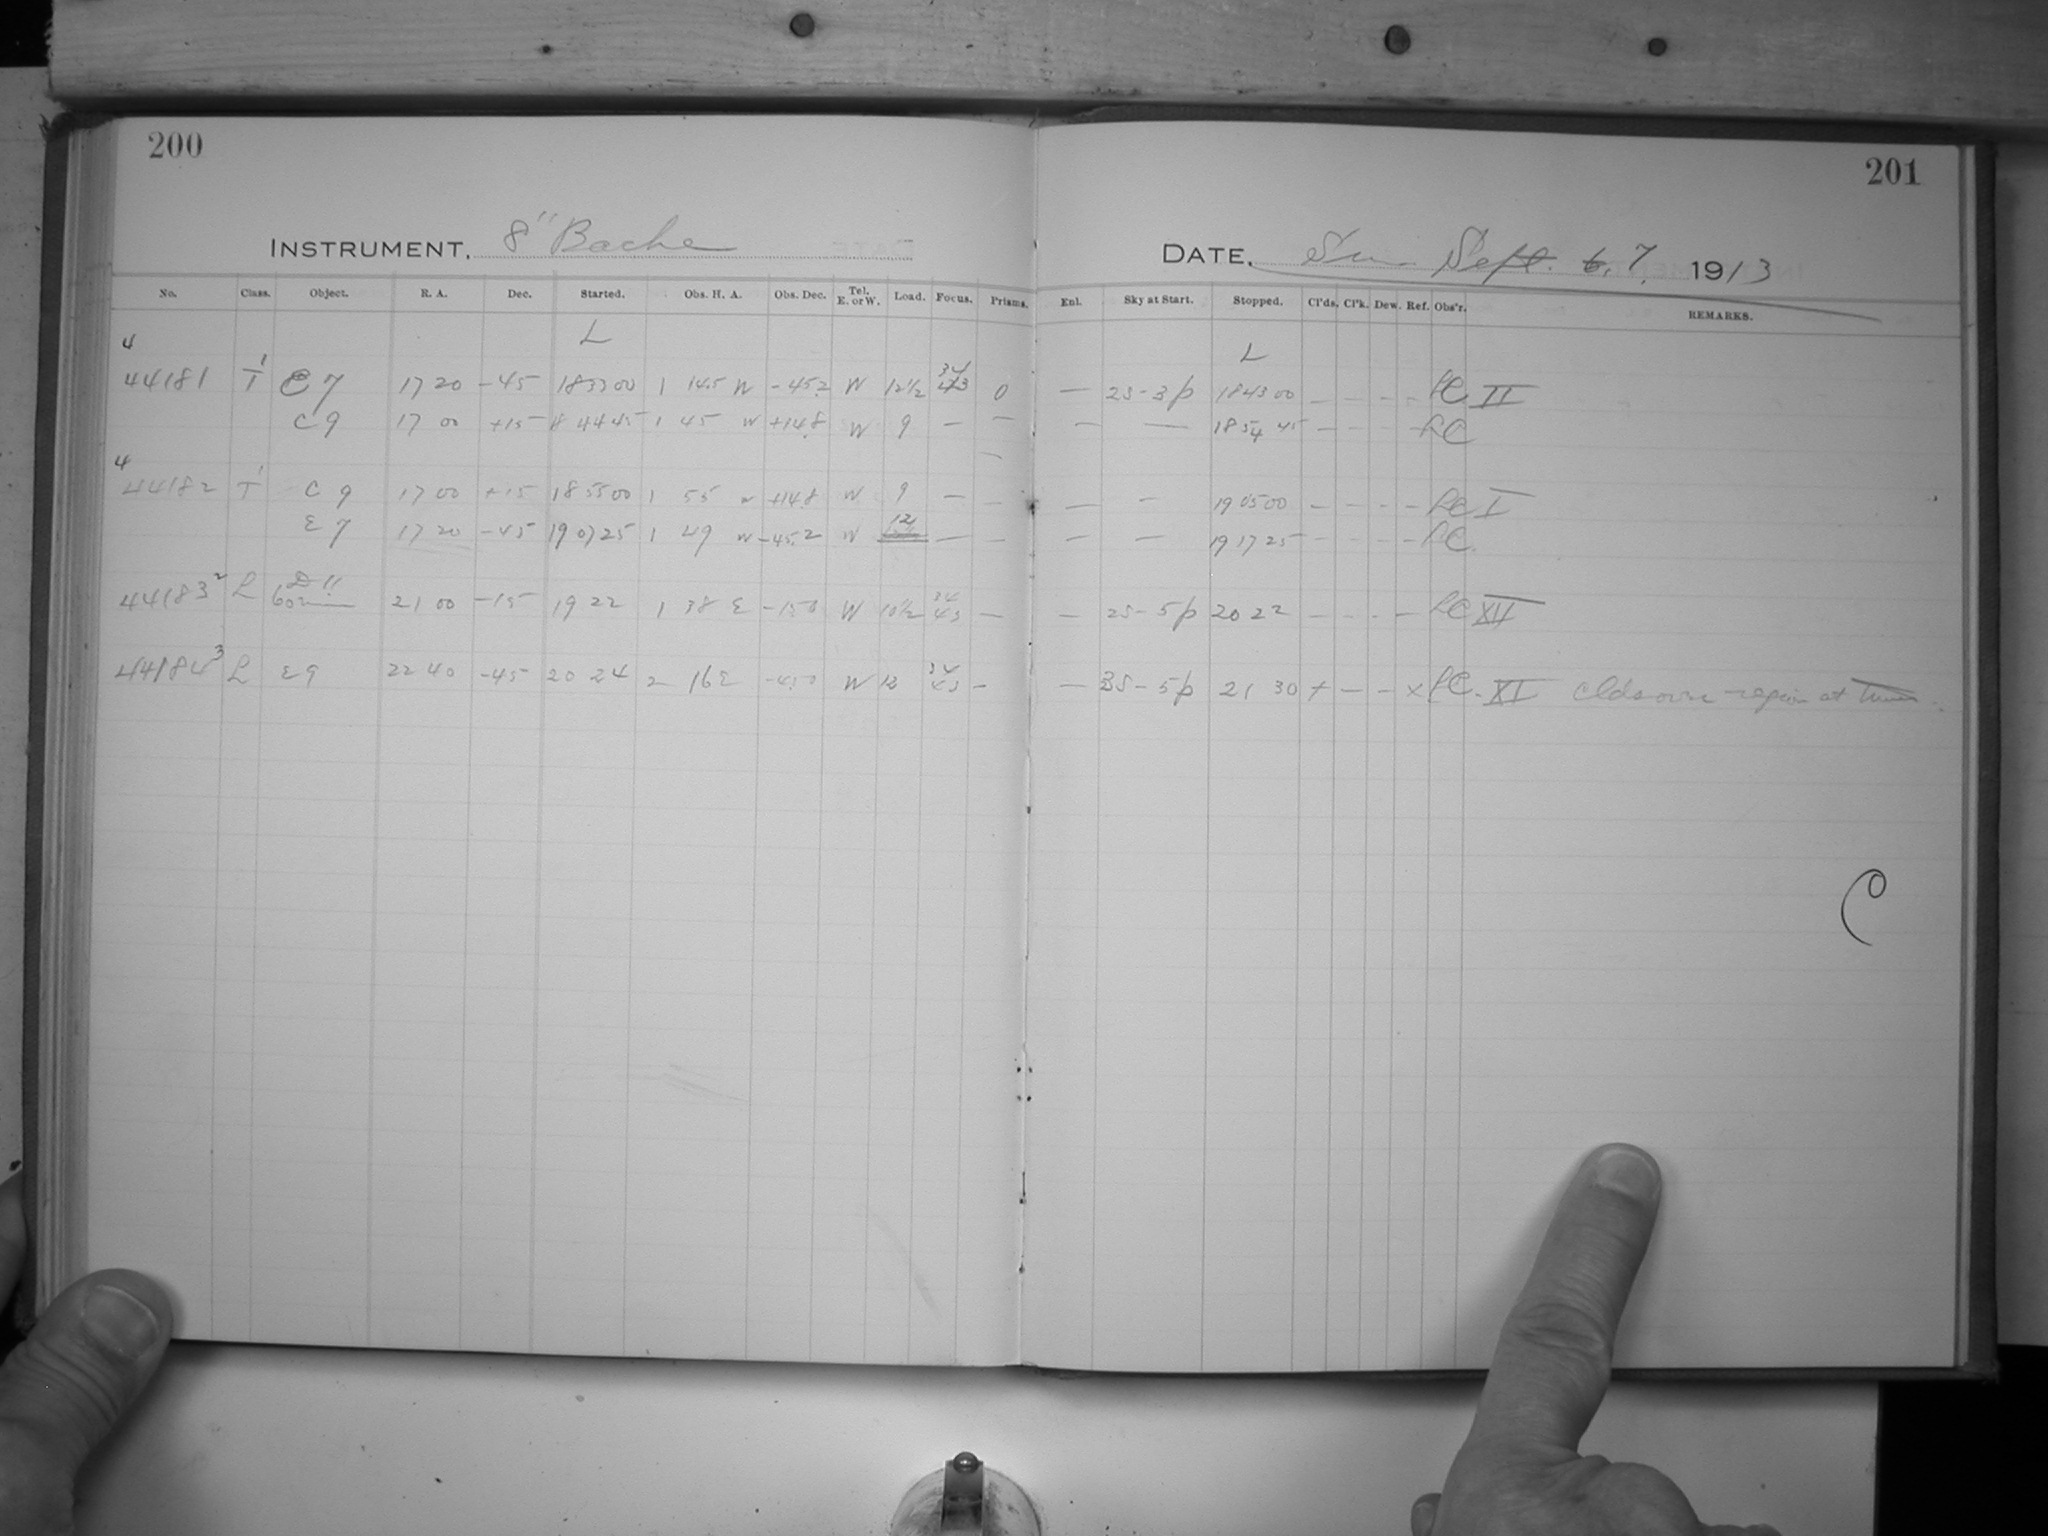 200
201
INSTRUMENT. 8" Bache
DATE. Sun Sept. 6. 7, 1913
No. Class. Object. R. A. Dec. Started. Obs. H. A. Obs. Dec. Tel. E. or W. Load. Focus. Prisms. Enl. Sky at Start. Stopped. Cl'ds. Cl'k. Dew. Ref. Obs'r. REMARKS.
L L
4
44181 T 1 E 7 17 20 -45 18 33 00 1 14.5 W -45.2 W 12 1/2 34 43 0 — 2S-3p 18 43 00 - - - - LC II
C 9 17 00 +15 18 44 45 1 45 W +14.8 W 9 — — — — 18 54 45 - - - - LC
4
44182 T 1 C 9 17 00 +15 18 55 00 1 55 W +14.8 W 9 — — — — 19 05 00 - - - - LC I
E 7 17 20 -45 19 07 25 1 49 W -45.2 W 12 — — — — 19 17 25 - - - - LC
44183 2 L D 11 60 min 21 00 -15 19 22 1 38 E -15.0 W 10 1/2 34 43 — — 2S-5p 20 22 - - - - LC XII
44184 3 L E 9 22 40 -45 20 24 2 16 E -45.0 W 12 34 43 — — 3S-5p 21 30 + - - x LC XI Clds over region at times.
C